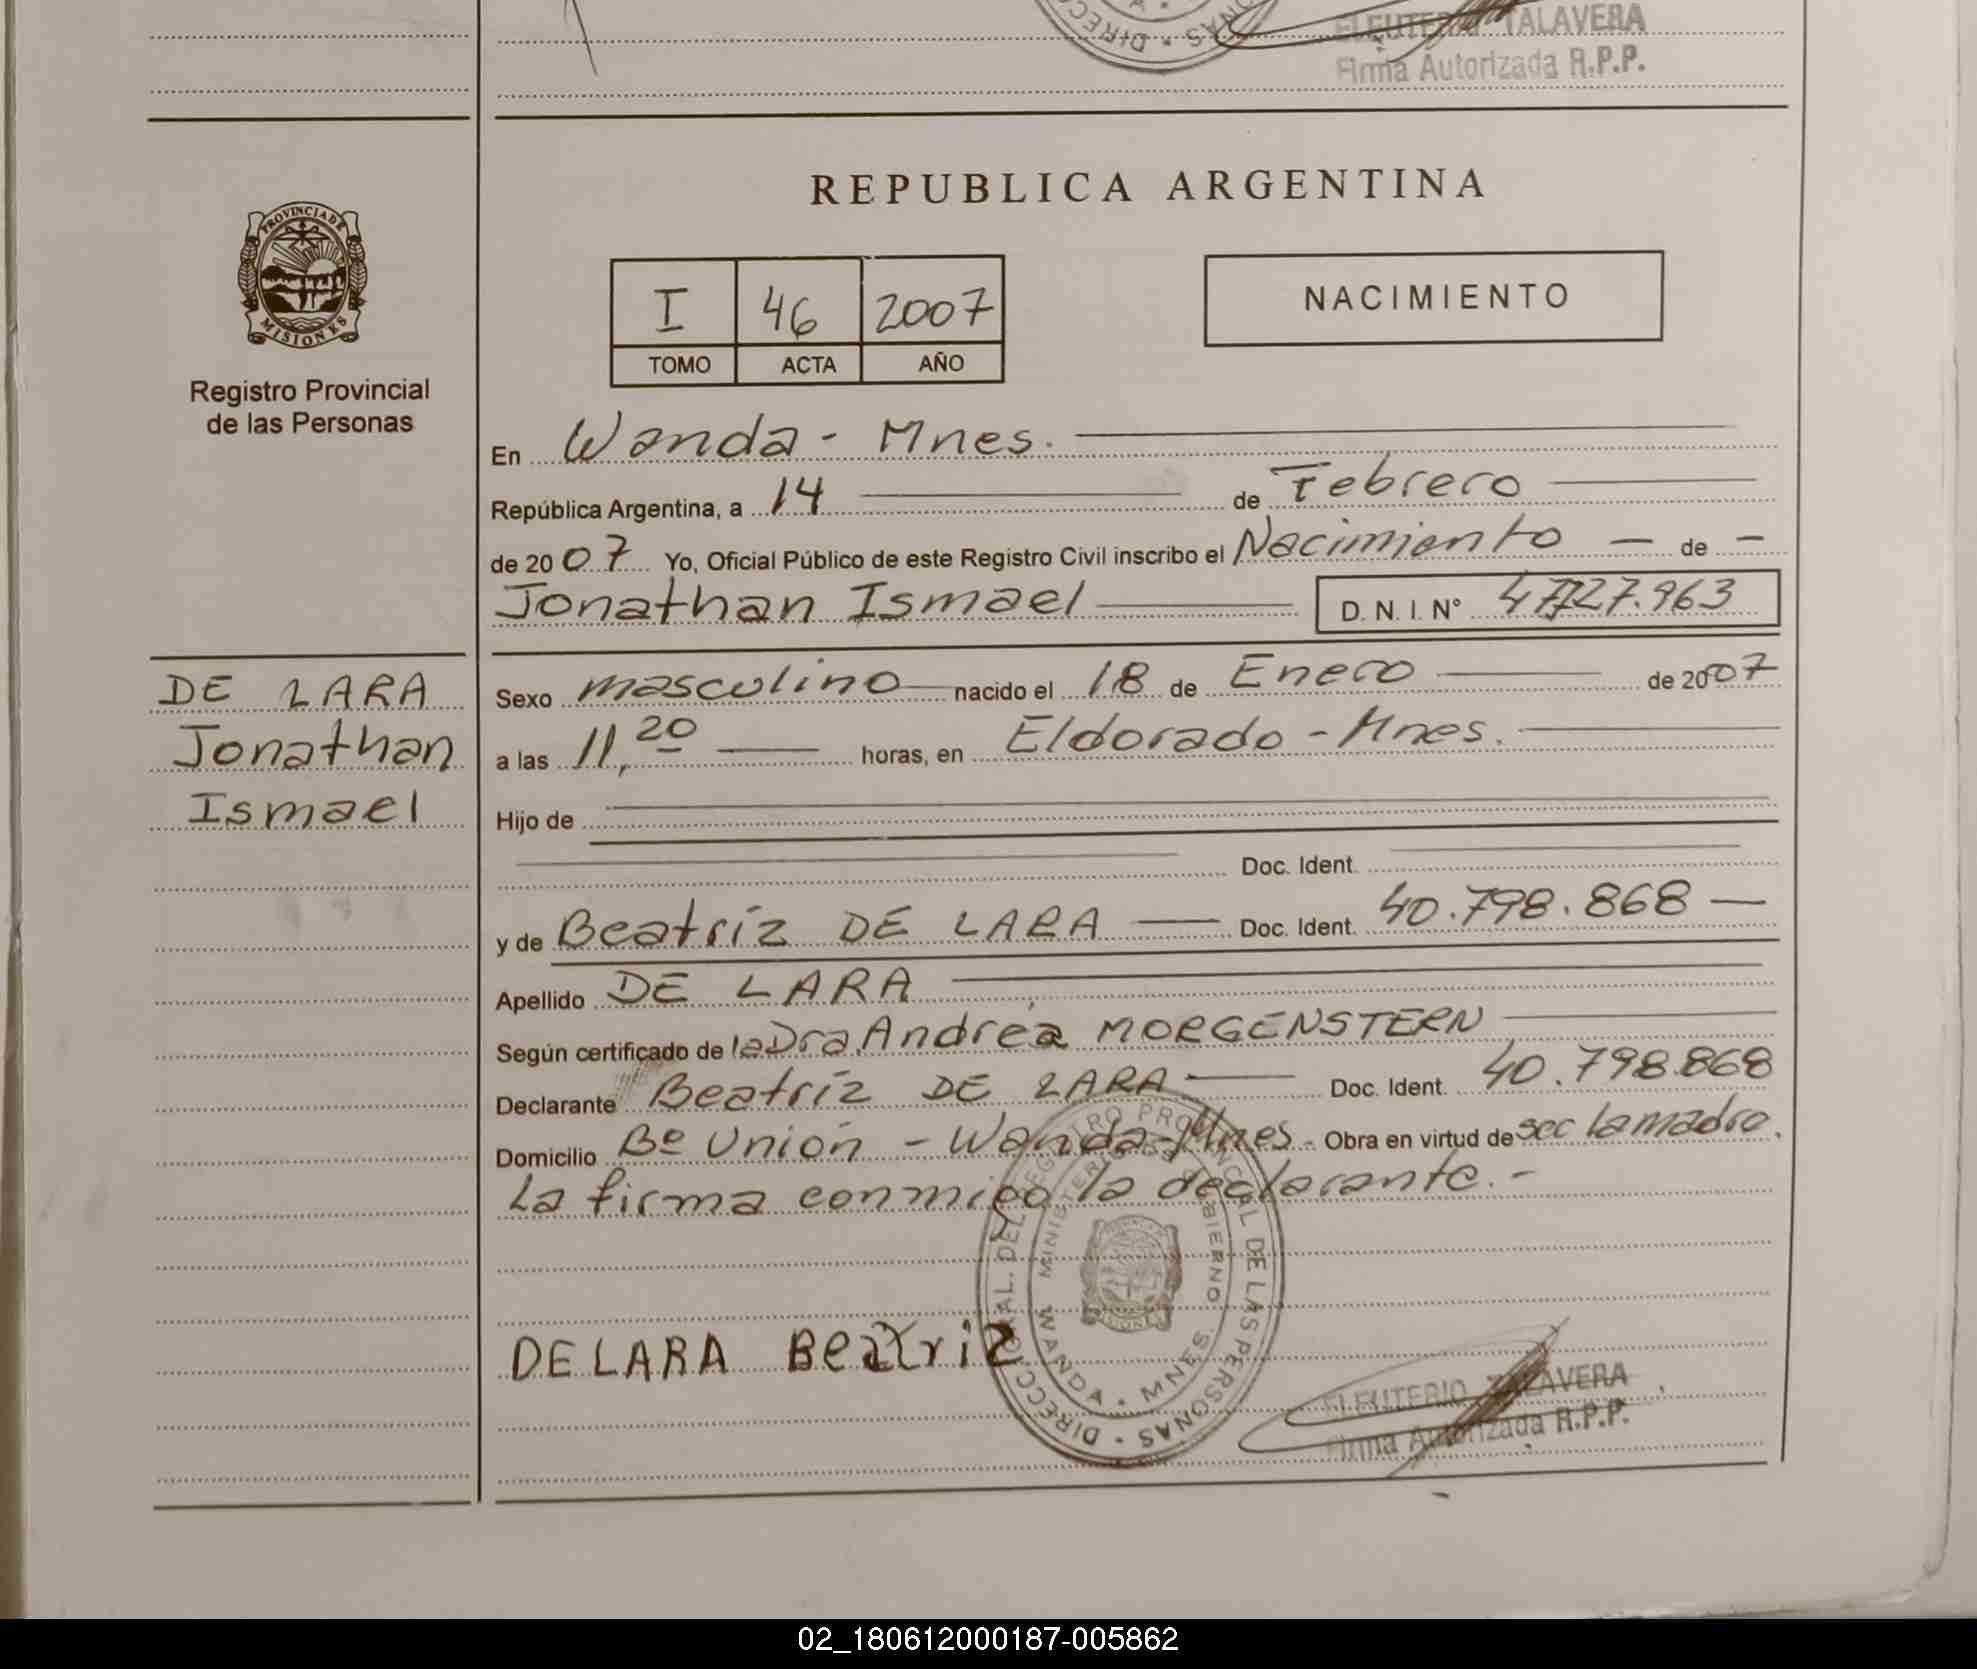 ELEUTERIO TALAVERA
Firma Autorizada R.P.P.
REPUBLICA ARGENTINA
PROVINCIA DE
MISIONES
Registro Provincial
de las Personas
I 46 2007
TOMO ACTA AÑO
NACIMIENTO
En Wanda - Mnes.
República Argentina, a 14 de Febrero
de 2007 Yo, Oficial Público de este Registro Civil inscribo el Nacimiento — de —
Jonathan Ismael D. N. I. N°
DE LARA
Jonathan
Ismael
Sexo masculino nacido el 18 de Enero de 2007
a las 11,20 horas, en Eldorado - Mnes.
Hijo de
Doc. Ident.
y de Beatríz DE LARA — Doc. Ident. 40.798.868 —
Apellido DE LARA
Según certificado de la Dra. Andréa MORGENSTERN
Declarante Beatríz DE LARA Doc. Ident. 40.798.868
Domicilio Bº Unión - Wanda - Mnes. Obra en virtud de ser la madre.
La firma conmigo la declarante.-
DIRECC GRAL. DEL REGISTRO PROVINCIAL DE LAS PERSONAS
MINISTERIO DE GOBIERNO
WANDA • MNES.
DE LARA Beatriz
ELEUTERIO TALAVERA
Firma Autorizada R.P.P.
02_180612000187-005862